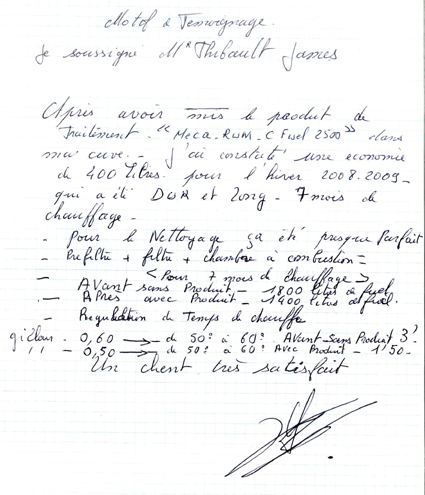 Motof de Temoignage.
Je soussigné Mr Thibault James
Après avoir mis le produit de
Traitement - "Meca-Run-C Fuel 2500" dans
ma cuve - J'ai constaté une economie
de 400 Litres pour l'hiver 2008-2009 -
qui a été DUR et Long - 7 mois de
chauffage -
- Pour le Nettoyage ça été presque Parfait
- Préfiltre + filtre + chambre à combustion =
- < Pour 7 mois de chauffage >
Avant sans Produit - 1800 litres de fuel
- Apres avec Produit - 1400 litres de fuel.
- Regulation du Temps de chauffe
gicleur - 0,60 → de 50° à 60° Avant-sans Produit 3'.
,, - 0,50 → de 50° à 60° Avec Produit - 1'50 -
Un client très satisfait